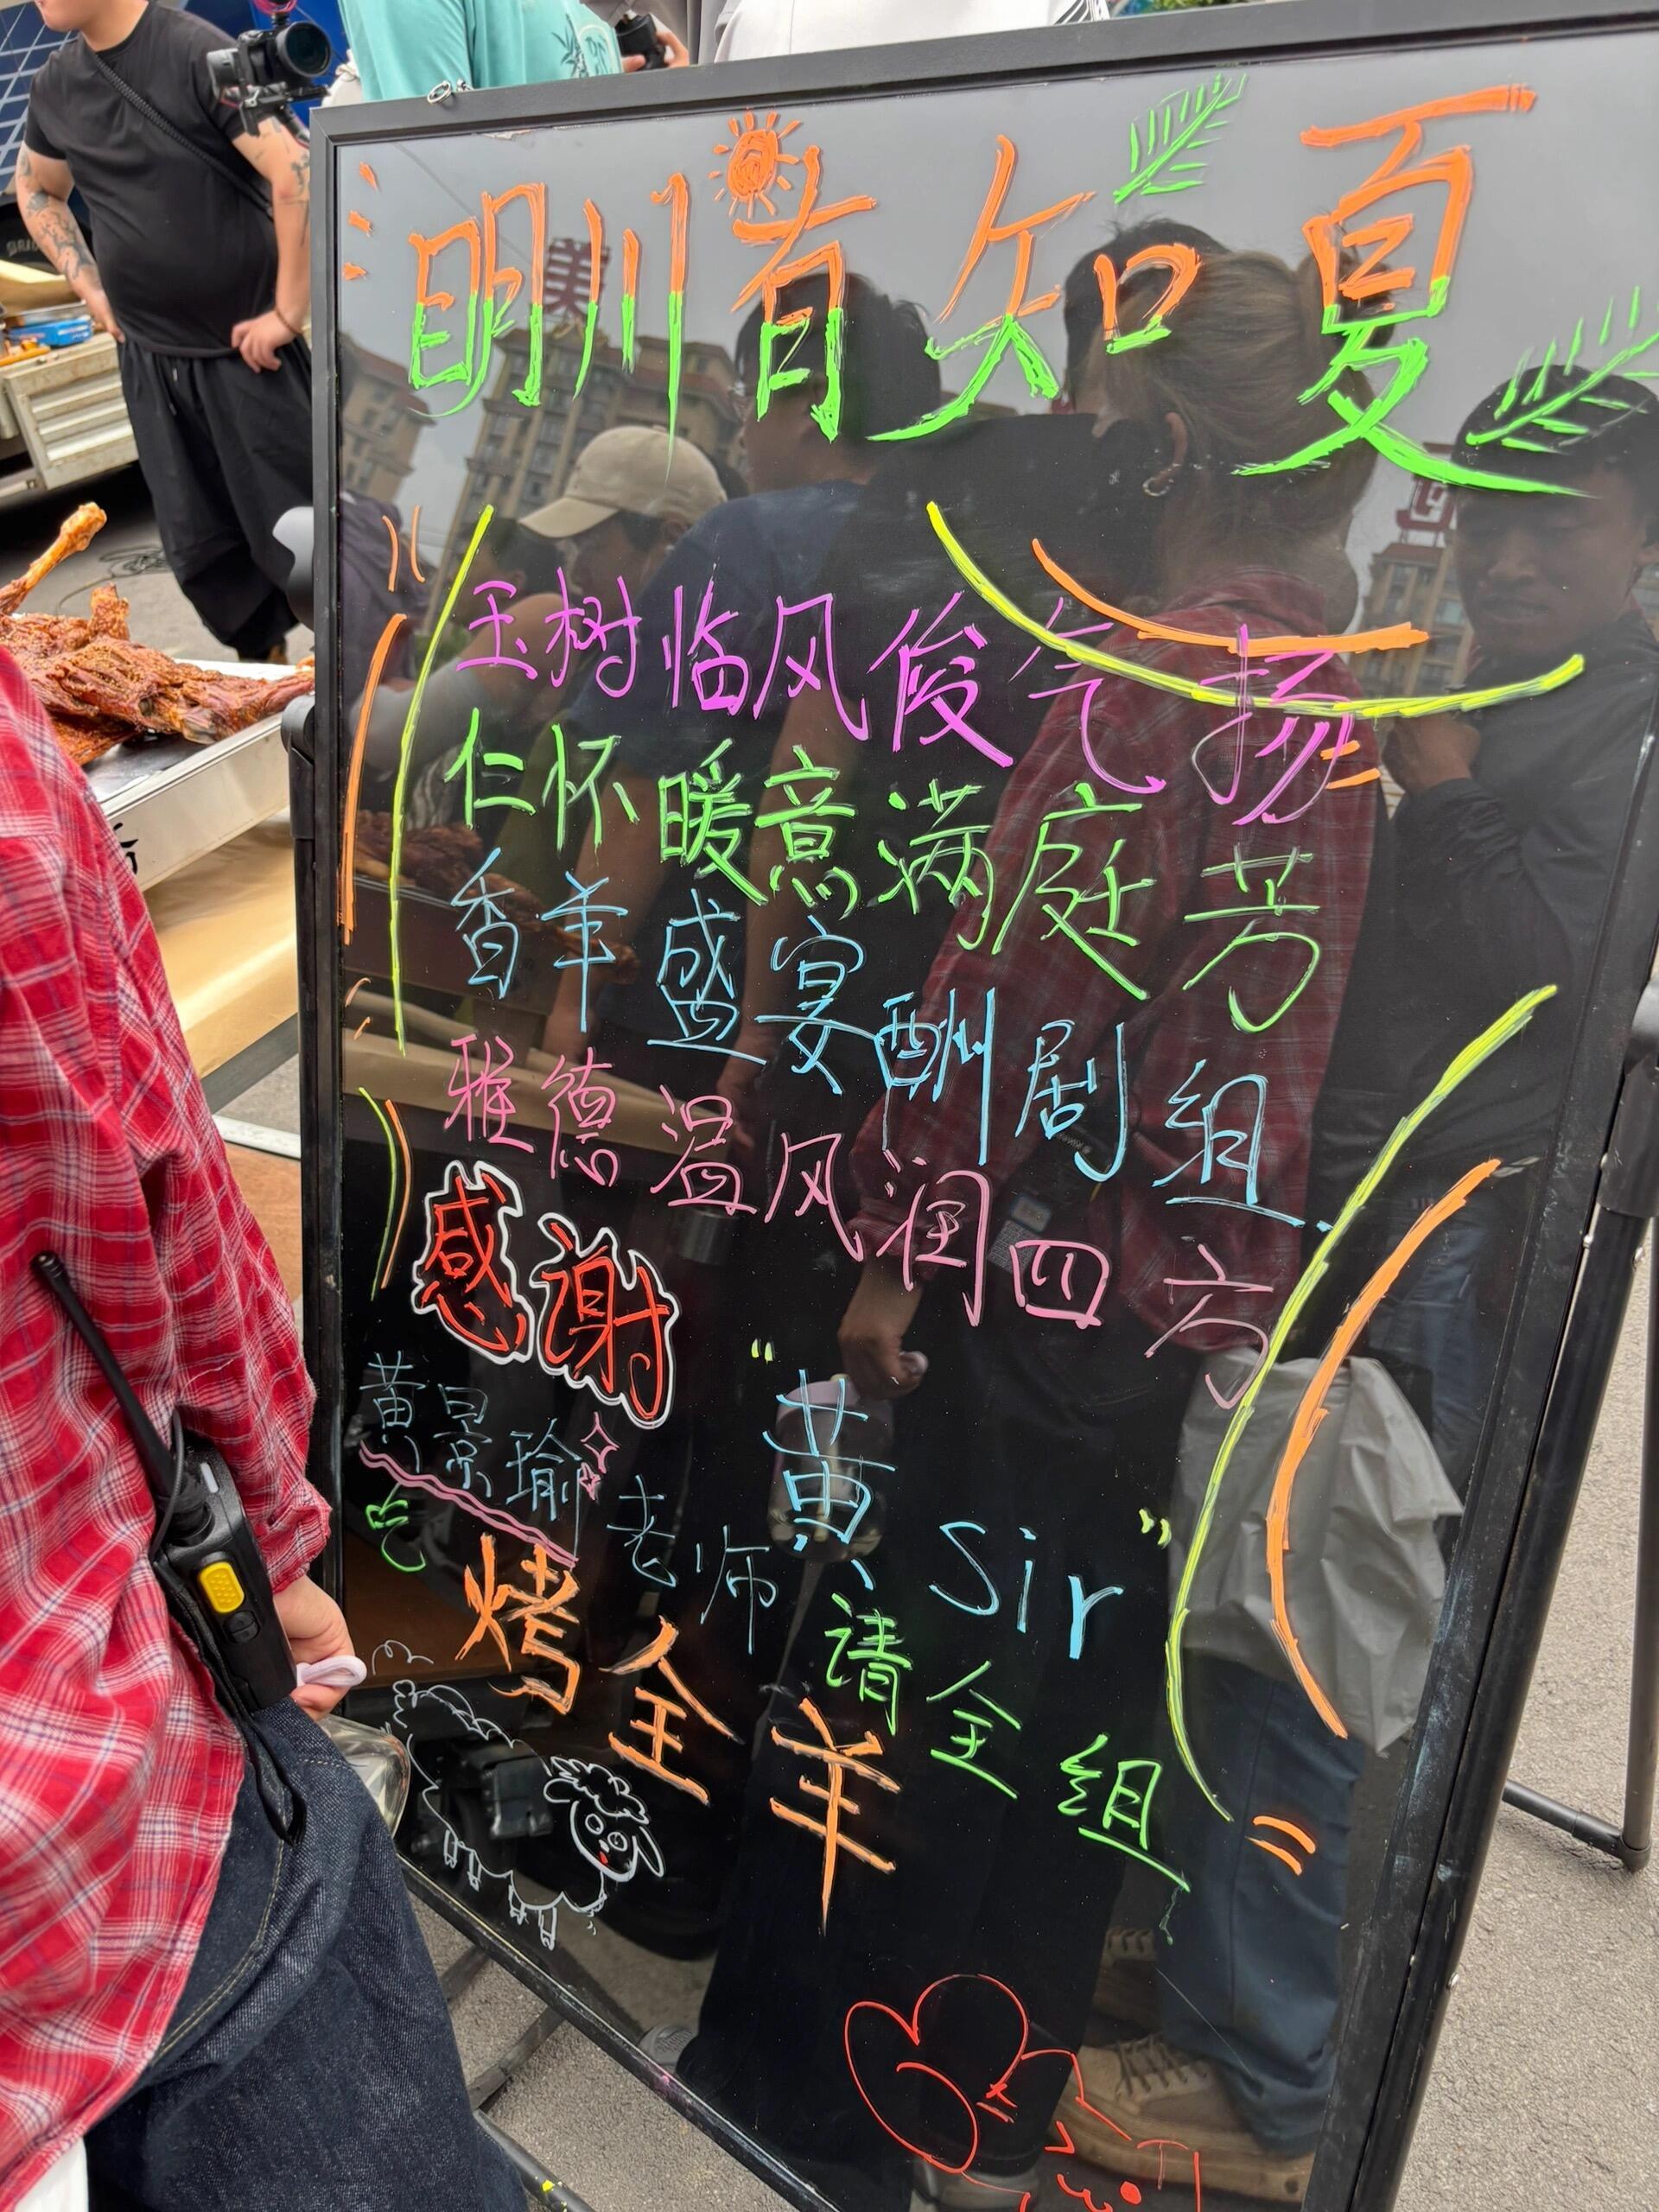 明川有知夏
玉树临风俊气扬
仁怀暖意满庭芳
香羊盛宴酬剧组
雅德温风润四方
感谢
黄景瑜老师
"黄Sir"
请全组
吃
烤全羊